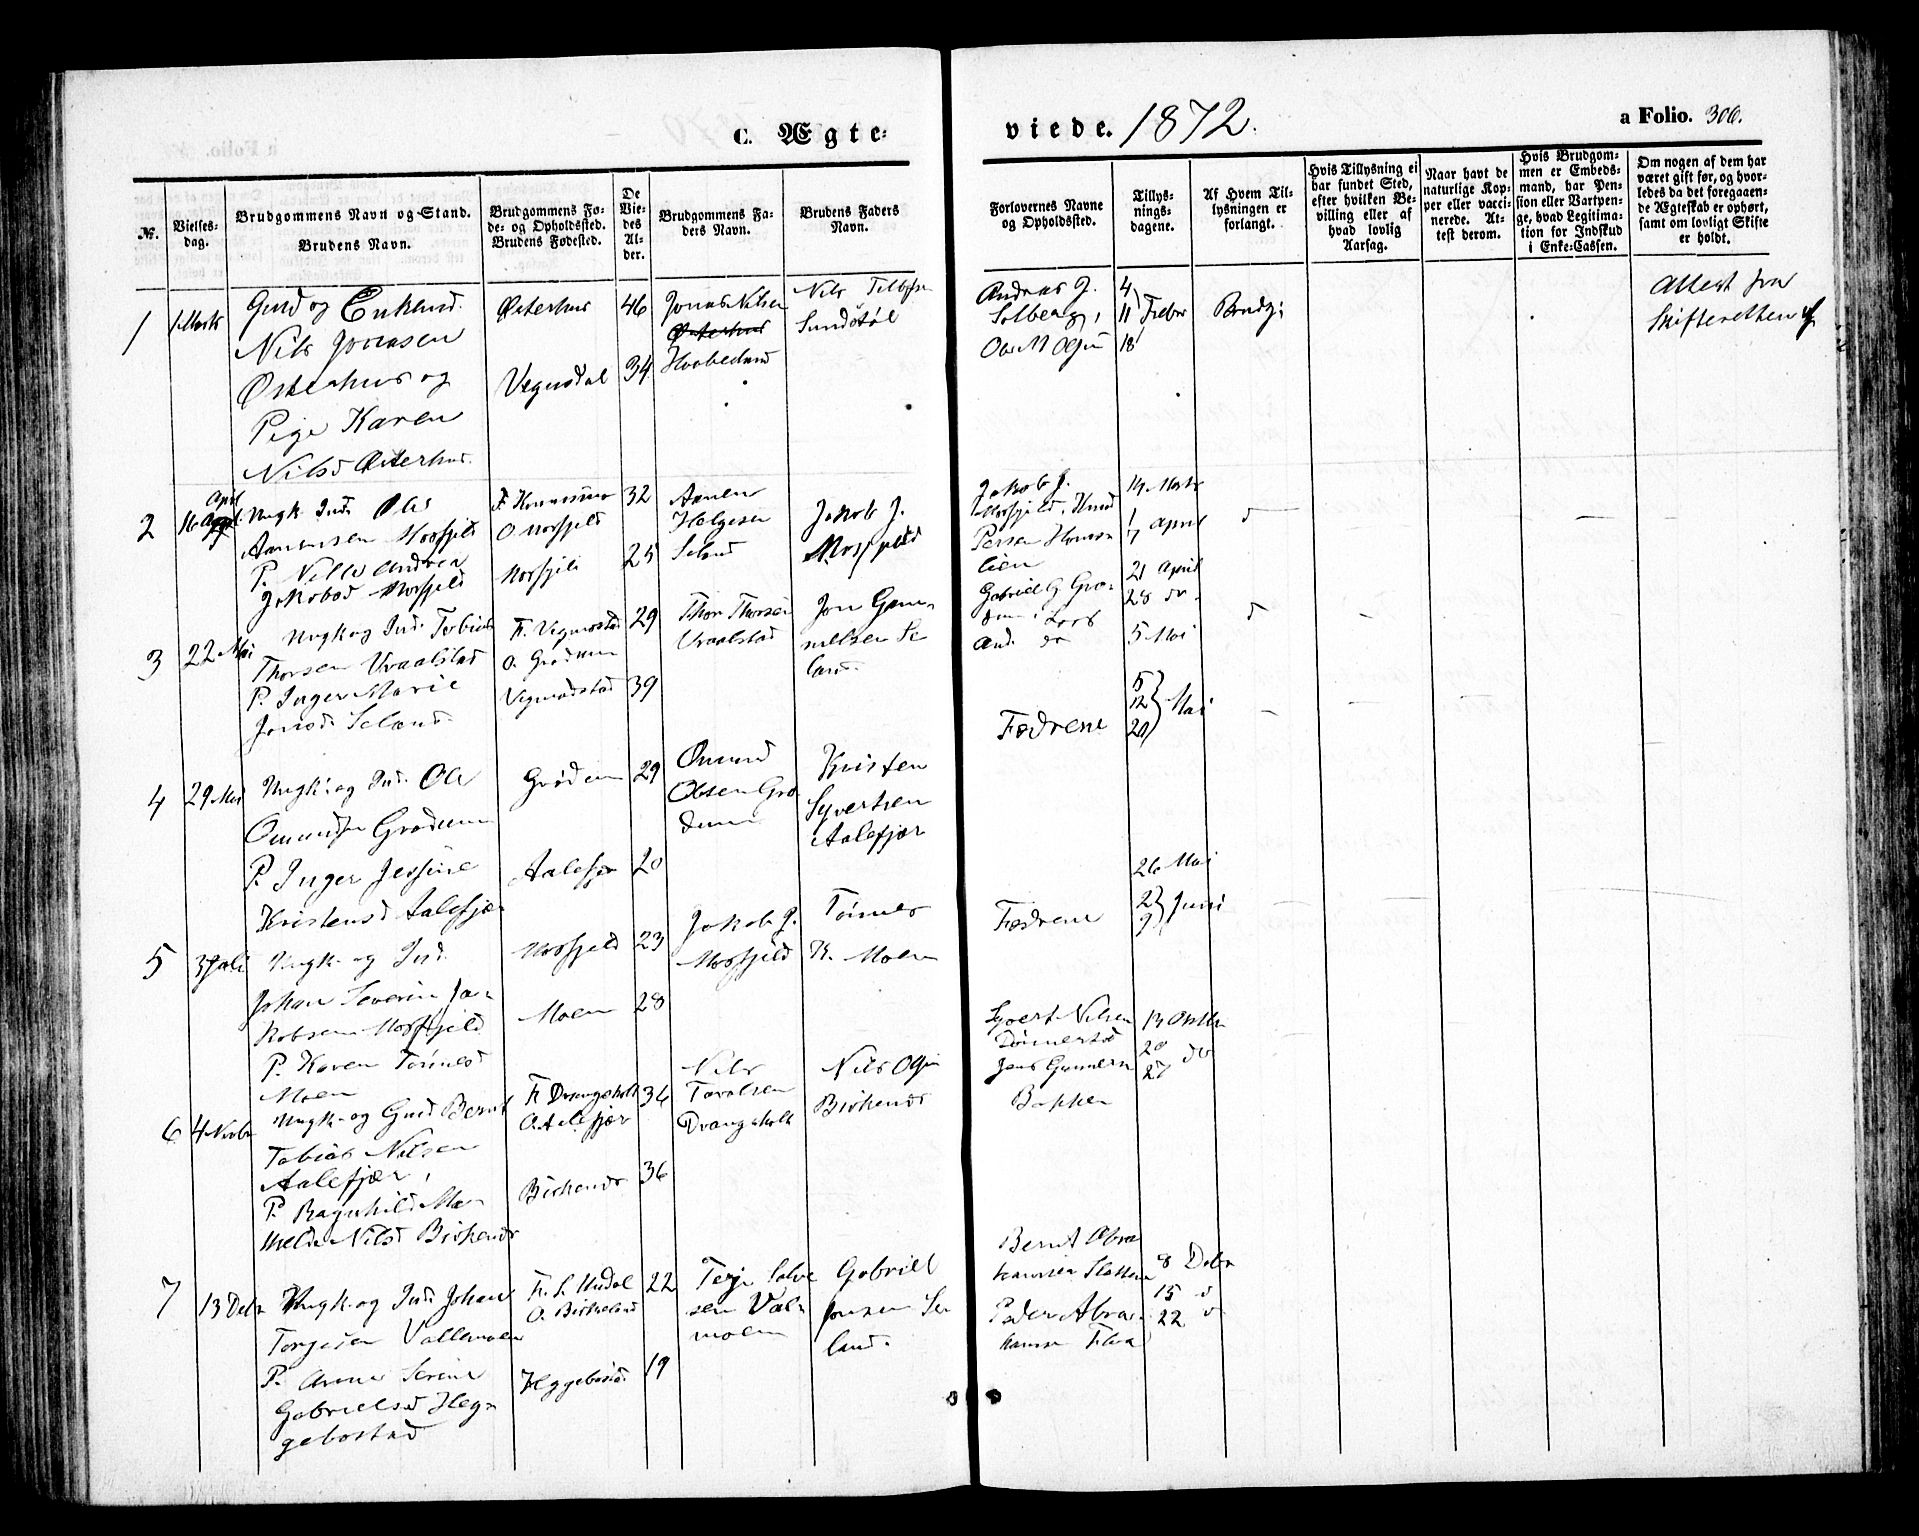 C. Ægte-
viede. 1872.
a Folio. 306.
Nr.
Vielses-
dag.
Brudgommens Navn og Stand.
Brudens Navn.
Brudgommens Fø-
de- og Opholdssted.
Brudens Fødested.
De
Vie-
des
Al-
der.
Brudgommens Fa-
ders Navn.
Brudens Faders
Navn.
Forlovernes Navne
og Opholdssted.
Tillys-
nings-
dagene.
Af Hvem Til-
lysningen er
forlangt.
Hvis Tillysning ei
har fundet Sted,
efter hvilken Be-
villing eller af
hvad lovlig
Aarsag.
Naar havt de
naturlige Kop-
per eller vacci-
nerede. At-
test derom.
Hvis Brudgom-
men er Embeds-
mand, har Pen-
sion eller Vartpen-
ge, hvad Legitima-
tion for Indskud
i Enke-Cassen.
Om nogen af dem har
været gift før, og hvor-
ledes da det foregaaen-
de Ægteskab er ophørt,
samt om lovligt Skifte
er holdt.
1
Gmd og Enkemd.
Nils Jonasen
Østerhus og
Pige Karen
Nilsd Østerhus.
Østerhus
Vegusdal
46
34
Jonas Nilsen
Østerhus
Nils
Sundstøl
Andreas J.
Solberg,
4
11 Febr
18
Attest fra
Skifteretten
2
16 April
Ungk. Ind. Ole
Aanensen Mosfjeld
P.
Jakobsd Mosfjeld
O Mosfjeld
Mosfjeld
32
25
Aanen
Helgesen
Jakob J.
Mosfjeld
Jakob J.
Mosfjeld, Knud
14 Marts
1
7 April
d
3
22 Mai
Ungk og Ind. Tobias
Thorsen Vraalstad
P. Inger Marie
Jonsd. Seland
F. Vegusdal
O. Grødum
Vegusdal
29
39
Thor Thorsen
Vraalstad
Jon Gun-
nulfsen Se-
land.
Gabriel G Grø-
21 April
28 do.
5 Mai
d
4
29 Mai
Ungk. og Ind. Ole
Omundsen Grødum
P. Inger Jessine
Kristensd Aalefjær
Grødum
Aalefjær
29
20
Omund
Olsen Grø-
dum
Kristen
Syvertsen
Aalefjær
Fædrene
5
12 Mai
20
5
3 Juli
Ungk. og Ind.
Johan Severin Ja-
kobsen Mosfjeld
P. Karen Tønnesd
Moen
Mosfjeld
Moen
23
28
Jakob J.
Mosfjeld
Tønnes
K. Moen
Fædrene
26 Mai
2
9 Juni
6
4 Novbr
Ungk. og Gmd Bernt
Tobias Nilsen
Aalefjær,
P. Ragnhild Ma-
thilde Nilsd Birkenes
F. Drangsholt
O. Aalefjær
Birkenes
36
36
Nils
Taralsen
Drangsholt
Nils
Birkenes
Syvert Nilsen
Jens Gunnersen
13 Oktbr
20
27 do
7
13 Debr
Ungk. og Ind. Johan
Torjesen Vallemoen
P. Anne Serine
Gabrielsd Heg-
gebostad
O. Birkeland
Heggebostad
22
19
Terje Salve-
sen Valle-
moen
Gabriel
Jonsen Se-
land.
Bernt Abra-
hamsen
Peder Abra-
hamsen
8 Debr
15 d
22 d